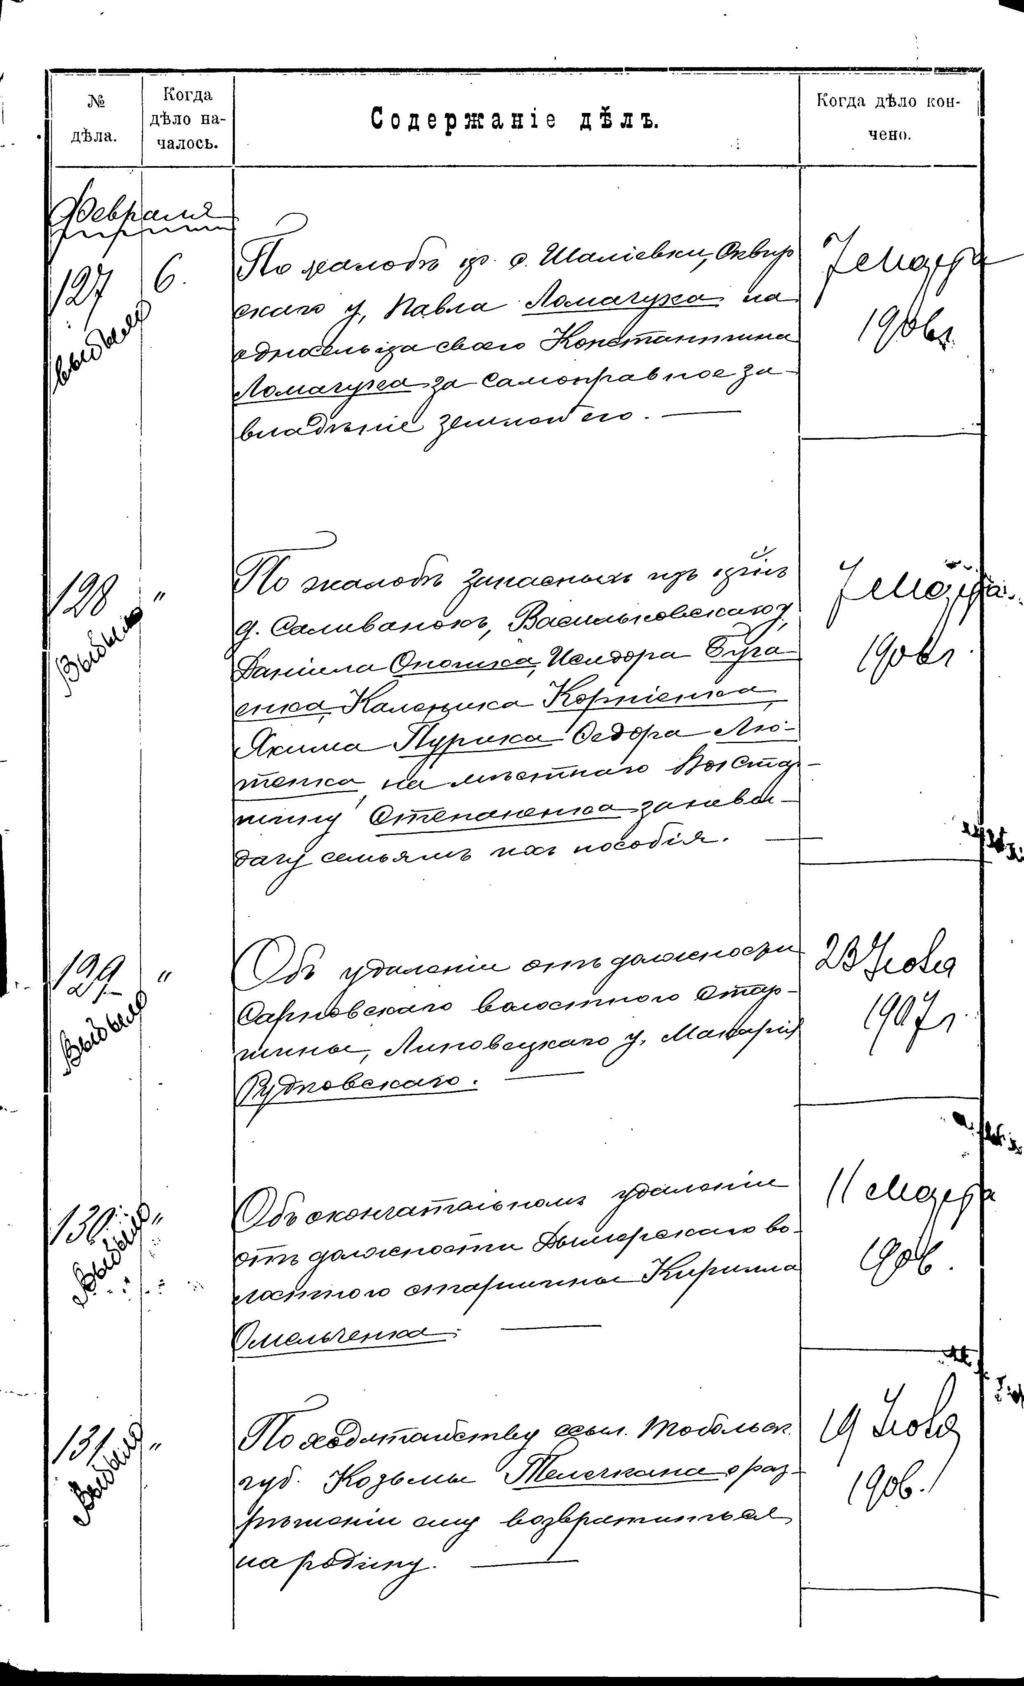 № дѣла.
Когда дѣло началось.
Содержаніе дѣлъ.
Когда дѣло кончено.
Февраля
127
6.
выбыло
По жалобѣ кр. с. Шаліевки, Сквир
скаго у, Павла Ломачука на
односельца своего Константина
Ломачука за самоправное за-
владѣніе землею его. —
7 Марта
1906 г.
128
"
Выбыло
По жалобѣ запасныхъ изъ
д. Саливанокъ, Васильковскаго у,
Даніила Опошка, Исидора Буга
енка, Каленика Корніенка,
Якима Пурика Ѳедора Лю-
тенка на мѣстнаго
шину Степаненка за невы-
дачу семьямъ ихъ пособія. —
7 Марта
1906 г.
129
"
Выбыло
Объ удаленіи отъ должности
Сарновскаго волостного Стар-
шины, Липовецкаго у, Макарія
Рудковскаго. —
23 Іюля
1907 г
130
"
Выбыло
Объ окончательномъ удаленіи
отъ должности Дымерскаго во-
лостного старшины Кирилла
Омельченка. —
11 Марта
1906.
131
"
Выбыло
По ходатайству ссыл. Тобольск
губ. Козьмы Телечкана о раз-
рѣшеніи ему возвратиться
на родину. —
19
1906.